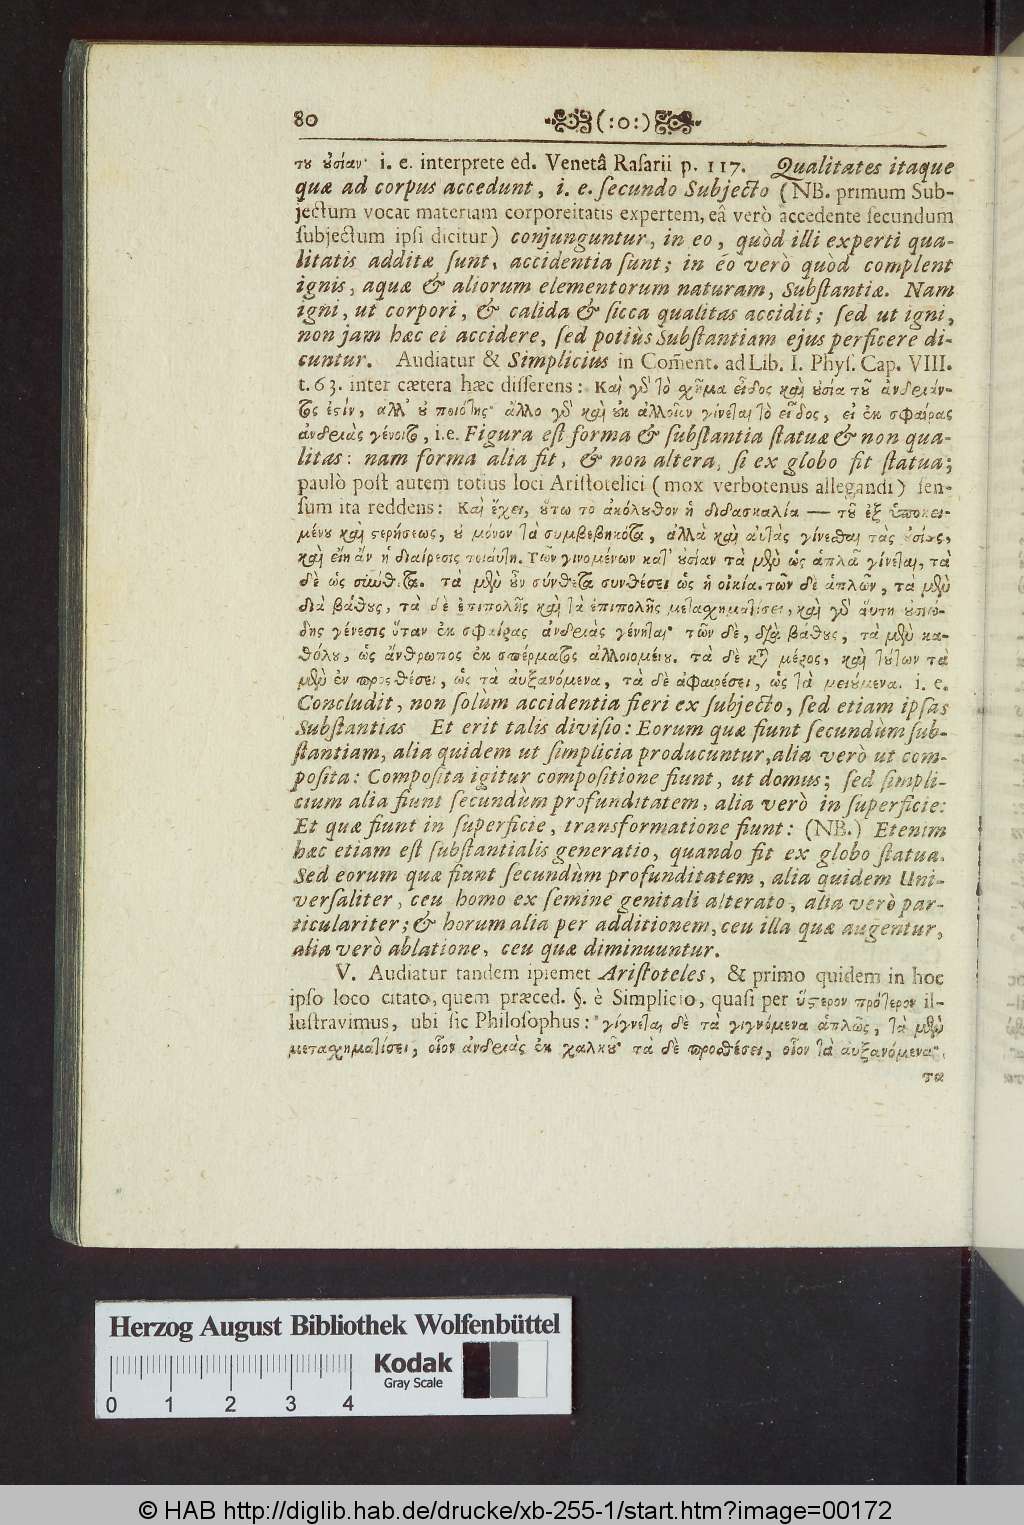 80 (:o:)
του ουσίαν· i. e. interprete ed. Venetâ Raſarii p. 117. Qualitates itaque
quæ ad corpus accedunt, i. e. ſecundo Subjecto (NB. primum Sub-
jectum vocat materiam corporeitatis expertem, eâ verò accedente ſecundum
ſubjectum ipſi dicitur) conjunguntur, in eo, quòd illi experti qua-
litatis additæ ſunt, accidentia ſunt; in eo verò quòd complent
ignis, aquæ & aliorum elementorum naturam, Subſtantiæ. Nam
igni, ut corpori, & calida & ſicca qualitas accidit; ſed ut igni,
non jam hæc ei accidere, ſed potiùs Subſtantiam ejus perficere di-
cuntur. Audiatur & Simplicius in Com̃ent. ad Lib. I. Phyſ. Cap. VIII.
t. 63. inter cætera hæc diſſerens: Καὶ γὸ τὸ χῆμα εἶδος καὶ ουσία τοῦ ἀνδριάν-
τος ἐςίν, ἀλλ' ου ποιότης· ἄλλο γὸ καὶ ουκ ἀλλοῖον γίνεται τὸ εἶδος, εἰ ἐκ σφαίρας
ἀνδριὰς γένοιτο, i.e. Figura eſt forma & ſubſtantia ſtatuæ & non qua-
litas: nam forma alia fit, & non altera, ſi ex globo fit ſtatua;
paulò poſt autem totius loci Ariſtotelici (mox verbotenus allegandi) ſen-
ſum ita reddens: Καὶ ἔχει, ούτω το ἀκόλουθον ἡ διδασκαλία — τοῦ ἐξ ὑποκει-
μένου καὶ ςερήσεως, ου μόνον τὰ συμβεβηκότα, ἀλλὰ καὶ αὐτὰς γίνεσθαι τὰς ουσίας,
καὶ εἴη ἂν ἡ διαίρεσις τοιαύτη. Τῶν γινομένων κατ' ουσίαν τὰ μὲν ὡς ἁπλᾶ γίνεται, τὰ
δὲ ὡς σύνθετα. τὰ μὲν οῦν σύνθετα συνθέσει ὡς ἡ οἰκία. τῶν δὲ ἁπλῶν, τὰ μὲν
διὰ βάθους, τὰ δὲ ἐπιπολῆς καὶ τὰ ἐπιπολῆς μεταχηματίσει, καὶ γὸ αὕτη ουσιώ-
δης γένεσις ὅταν ἐκ σφαίρας ἀνδριὰς γένηται· τῶν δὲ, διὰ βάθους, τὰ μὲν κα-
θόλου, ὡς ἄνθρωπος ἐκ σπέρματος ἀλλοιομένου. τὰ δὲ κατὰ μέρος, καὶ τούτων τὰ
μὲν ἐν προςθέσει, ὡς τὰ αὐξανόμενα, τὰ δὲ ἀφαιρέσει, ὡς τὰ μειούμενα. i. e.
Concludit, non ſolùm accidentia fieri ex ſubjecto, ſed etiam ipſas
Subſtantias Et erit talis diviſio: Eorum quæ fiunt ſecundùm ſub-
ſtantiam, alia quidem ut ſimplicia producuntur, alia verò ut com-
poſita: Compoſita igitur compoſitione fiunt, ut domus; ſed ſimpli-
cium alia fiunt ſecundùm profunditatem, alia verò in ſuperficie:
Et quæ fiunt in ſuperficie, transformatione fiunt: (NB.) Etenim
hæc etiam eſt ſubſtantialis generatio, quando fit ex globo ſtatua.
Sed eorum quæ fiunt ſecundùm profunditatem, alia quidem Uni-
verſaliter, ceu homo ex ſemine genitali alterato, alia verò par-
ticulariter; & horum alia per additionem, ceu illa quæ augentur,
alia verò ablatione, ceu quæ diminuuntur.
V. Audiatur tandem ipſemet Ariſtoteles, & primo quidem in hoc
ipſo loco citato, quem præced. §. è Simplicio, quaſi per ὕςερον πρότερον il-
luſtravimus, ubi ſic Philoſophus: γίγνεται δὲ τὰ γιγνόμενα ἁπλῶς, τὰ μὲν
μεταχηματίσει, οἷον ἀνδριὰς ἐκ χαλκοῦ· τὰ δὲ προσθέσει, οἷον τὰ αὐξανόμενα·
τα
Herzog August Bibliothek Wolfenbüttel
Kodak
Gray Scale
0 1 2 3 4
© HAB http://diglib.hab.de/drucke/xb-255-1/start.htm?image=00172